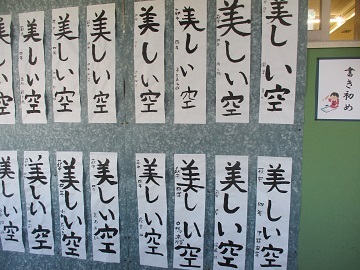 美しい空
美しい空
美しい空
美しい空
美しい空
美しい空
美しい空
美しい空
書き初め
美しい空
美しい空
美しい空
美しい空
美しい空
美しい空
美しい空
美しい空